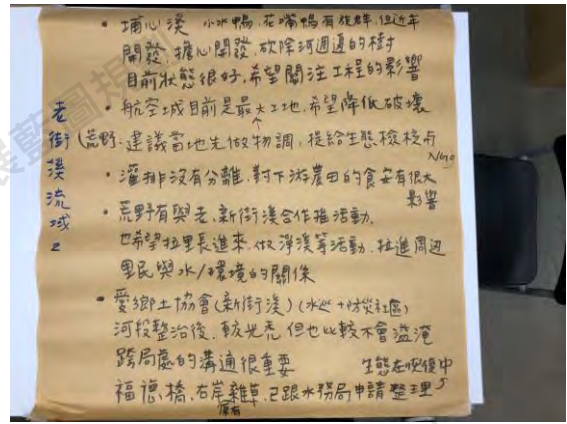 老街溪流域2
• 埔心溪 小水鴨,花嘴鴨有族群,但近年
開發,擔心開發,砍除河週邊的樹
目前狀態很好,希望關注工程的影響
• 航空城目前是最大工地,希望降低破壞
(荒野:建議當地先做物調,提給生態檢核与
NGO
• 灌排沒有分離,對下游農田的食安有很大
影響
• 荒野有與老、新街溪合作推活動.
也希望拉里長進來,做淨溪等活動,拉進周辺
里民與水/環境的關係
• 愛鄉土協會(新街溪)(水巡+防災社區)
河段整治後,較光禿 但也比較不會溢淹
跨局處的溝通很重要 生態在恢復中
福德橋,右岸雜草,已跟水務局申請整理